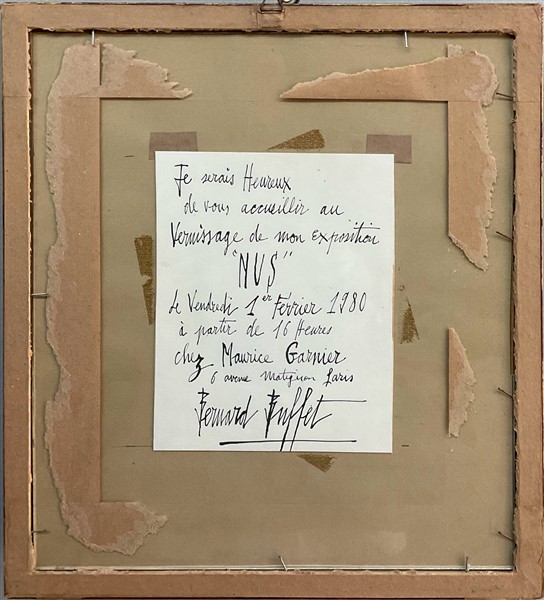 Je serais Heureux
de vous accueillir au
Vernissage de mon exposition
"NUS"
le Vendredi 1er Février 1980
à partir de 16 Heures
chez Maurice Garnier
6 avenue Matignon Paris
Bernard Buffet